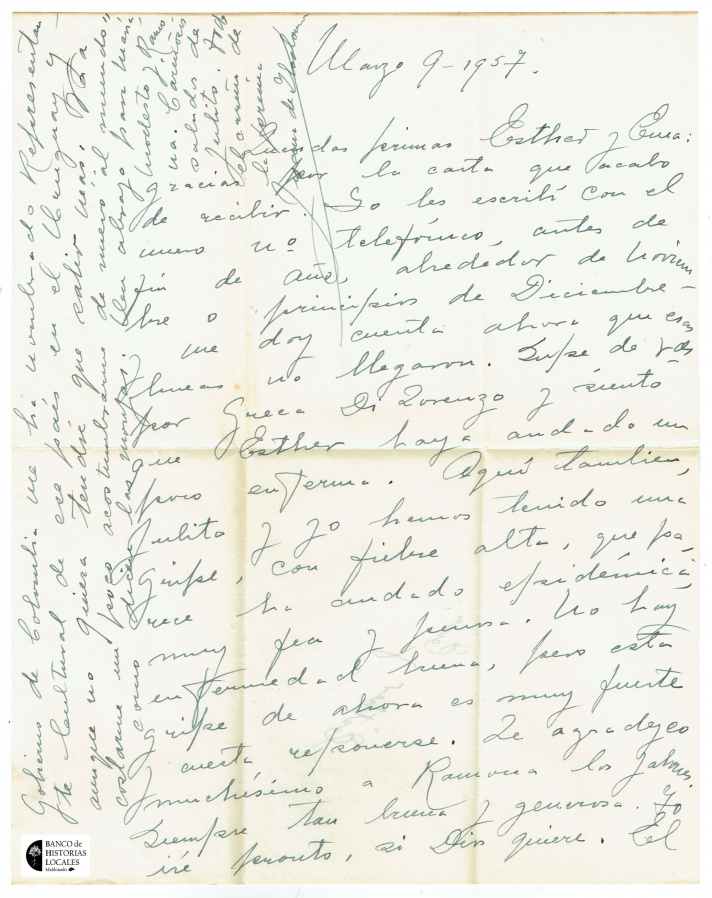 Marzo 9-1957.
Queridas primas Esther y Ema:
gracias por la carta que acabo
de recibir. Yo les escribí con el
nuevo nº telefónico, antes de
fin de año, alrededor de Noviem
bre o principios de Diciembre-
me doy cuenta ahora que esas
líneas no llegaron. Supe de Vds
por Gueca Di Lorenzo y siento
que Esther haya andado un
poco enferma. Aquí tambien,
Julito y yo hemos tenido una
Gripe, con fiebre alta, que pa
rece ha andado epidémica,
muy fea y penosa. No hay
enfermedad buena, pero esta
gripe de ahora es muy fuerte
y cuesta reponerse. Le agradezco
muchísimo a Ramona los jabones
siempre tan buena y generosa. Yo
iré pronto, si Dios quiere. El
Gobierno de Colombia me ha nombrado Representan
te Cultural de ese país en el Uruguay y
aunque no quiera tendré que salir más, Ya
costarme un poco acostumbrarme de nuevo al mundo"
como dicen las monjas. Un abrazo para María
Modesto y Ramo
na. Cariñosos
saludos de
Julito. Todo
el cariño de
la prima
Juana de Ibarbourou
BANCO de
HISTORIAS
LOCALES
Maldonado